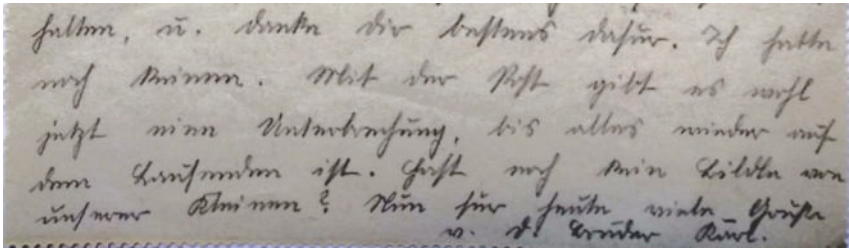 halten, u. danke Dir bestens dafür. Ich hatte
noch keinen. Mit der Post gibt es wohl
jetzt eine Unterbrechung, bis alles wieder auf
dem Laufenden ist. Hast noch kein Bildle von
unserer Kleinen? Nun für heute viele Grüße
v. D. Bruder Karl.